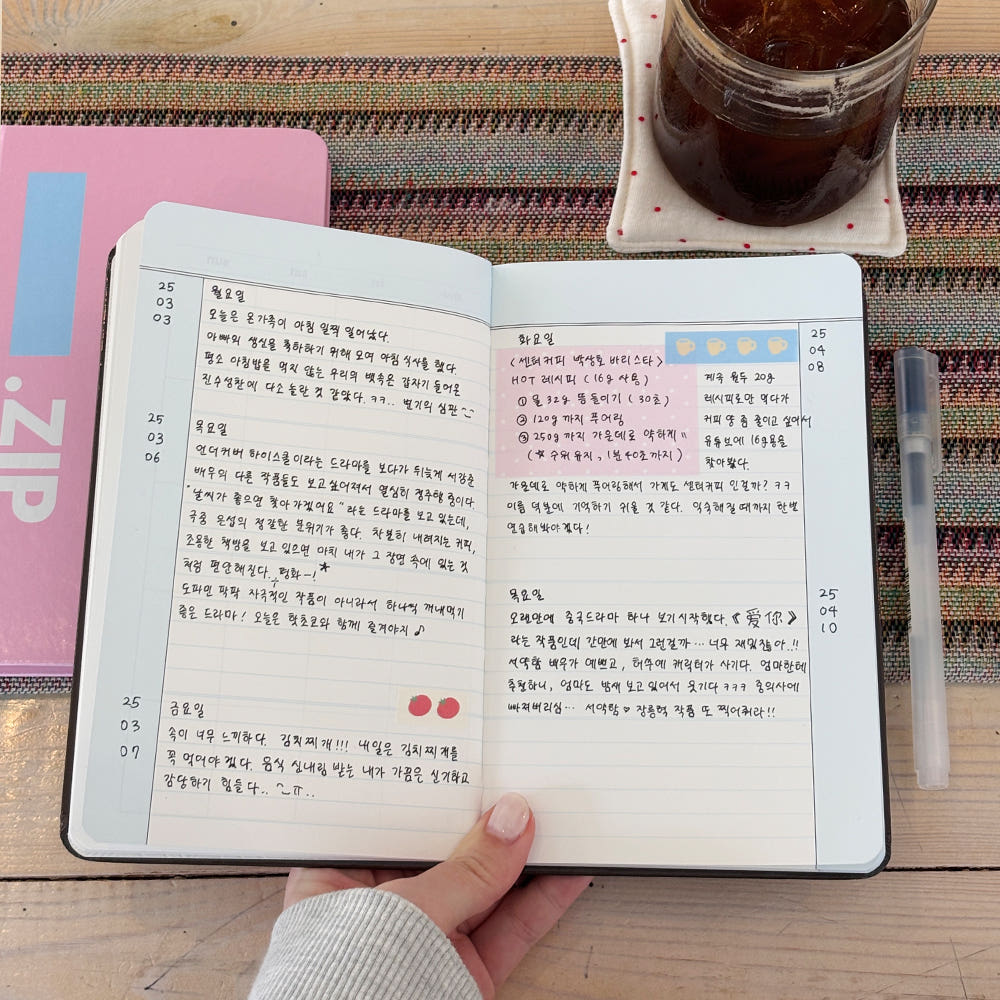 .ZIP
25
03
03
월요일
오늘은 온가족이 아침 일찍 일어났다.
아빠의 생신을 축하하기 위해 모여 아침 식사를 했다.
평소 아침밥을 먹지 않는 우리의 뱃속은 갑자기 들어온
진수성찬에 다소 놀란 것 같았다. ㅋㅋ..
25
03
06
목요일
언더커버 하이스쿨이라는 드라마를 보다가 뒤늦게 서강준
배우의 다른 작품들도 보고싶어져서 열심히 정주행 중이다.
"날씨가 좋으면 찾아가겠어요" 라는 드라마를 보고 있는데,
극중 은섭의 정갈한 분위기가 좋다. 차분히 내려지는 커피,
조용한 책방을 보고 있으면 마치 내가 그 장면 속에 있는 것
처럼 편안해진다. 평화—!
도파민 팍팍 자극적인 작품이 아니라서 하나씩 꺼내먹기
좋은 드라마! 오늘은 핫초코와 함께 즐겨야지 ♪
25
03
07
금요일
속이 너무 느끼하다. 김치찌개!!! 내일은 김치찌개를
꼭 먹어야 겠다. 음식 신내림 받는 내가 가끔은 신기하고
감당하기 힘들다..
25
04
08
화요일
<센터커피 박상호 바리스타>
HOT 레시피 (16g 사용)
① 물 32g 뜸들이기 (30초)
② 120g 까지 푸어링
③ 250g 까지 가운데로 약하게"
(☆ 수위 유지, 1분 40초까지)
계속 원두 20g
레시피로만 먹다가
커피 양 좀 줄이고 싶어서
유튜브에 16g용을
찾아봤다.
가운데로 약하게 푸어링해서 가게도 센터커피 인걸까? ㅋㅋ
이름 덕분에 기억하기 쉬울 것 같다. 익숙해질 때까지 한번
연습해봐야겠다!
25
04
10
목요일
오랜만에 중국드라마 하나 보기시작했다. 《爱你》
라는 작품인데 간만에 봐서 그런걸까… 너무 재밌잖아..!!
서약함 배우가 예쁘고, 허무에 캐릭터가 사기다. 엄마한테
추천하니, 엄마도 밤새 보고있어서 웃기다 ㅋㅋㅋ
빠져버리심… 서약함 ♡ 장릉혁 작품 또 찍어줘라!!